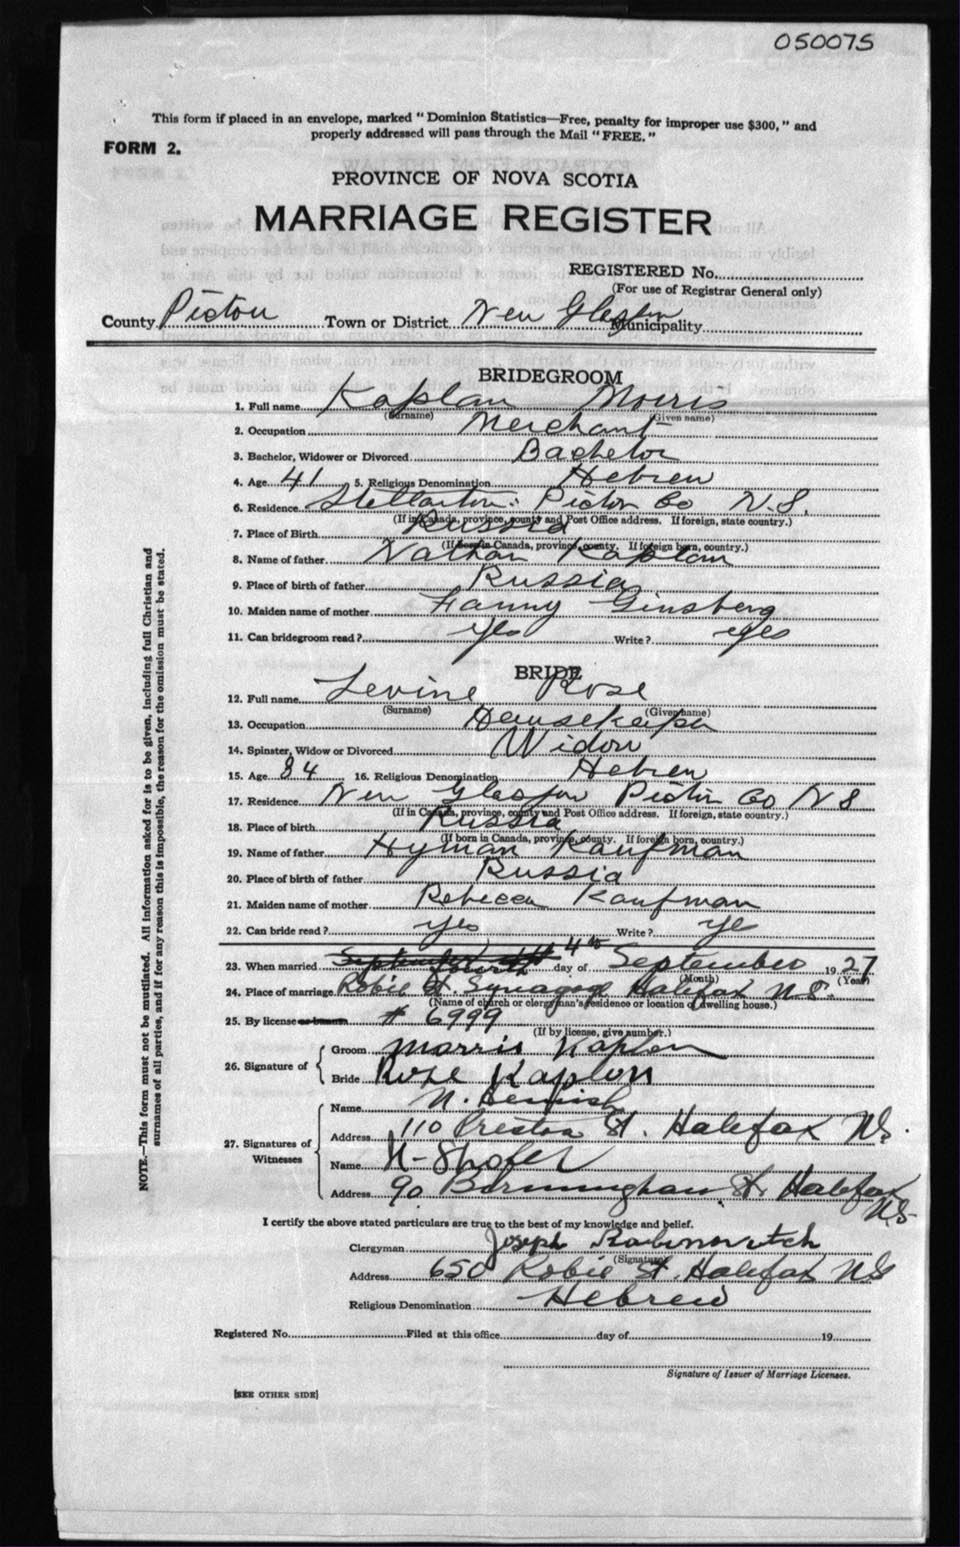 050075
This form if placed in an envelope, marked "Dominion Statistics—Free, penalty for improper use $300," and
properly addressed will pass through the Mail "FREE."
FORM 2.
PROVINCE OF NOVA SCOTIA
MARRIAGE REGISTER
REGISTERED No.
(For use of Registrar General only)
County Pictou Town or District New Glasgow Municipality
BRIDEGROOM
1. Full name Kaplan Morris
(Surname) (Given name)
2. Occupation Merchant
3. Bachelor, Widower or Divorced Bachelor
4. Age 41 5. Religious Denomination Hebrew
6. Residence Stellarton Pictou Co N.S.
(If in Canada, province, county and Post Office address. If foreign, state country.)
7. Place of Birth Russia
(If born in Canada, province, county. If foreign born, country.)
8. Name of father Nathan Kaplan
9. Place of birth of father Russia
10. Maiden name of mother Fanny Ginsberg
11. Can bridegroom read? yes Write? yes
BRIDE
12. Full name Levine Rose
(Surname) (Given name)
13. Occupation Housekeeper
14. Spinster, Widow or Divorced Widow
15. Age 34 16. Religious Denomination Hebrew
17. Residence New Glasgow Pictou Co N S
(If in Canada, province, county and Post Office address. If foreign, state country.)
18. Place of birth Russia
(If born in Canada, province, county. If foreign born, country.)
19. Name of father Hyman Kaufman
20. Place of birth of father Russia
21. Maiden name of mother Rebecca Kaufman
22. Can bride read? yes Write? ye
23. When married September fourth 4th day of September 1927
(Month) (Year)
24. Place of marriage Robie St. Synagog Halifax N.S.
(Name of church or clergyman's residence or location of dwelling house.)
25. By license or banns # 6999
(If by license, give number.)
26. Signature of Groom Morris Kaplan
Bride Rose Kaplon
27. Signatures of Witnesses Name N.
Address 110 Preston St. Halifax N.S.
Name N-Shofer
Address 90 Birmingham St. Halifax N.S.
I certify the above stated particulars are true to the best of my knowledge and belief.
Clergyman Joseph Rabinovitch
(Signature)
Address 650 Robie St. Halifax NS
Religious Denomination Hebrew
Registered No. Filed at this office day of 19
Signature of Issuer of Marriage Licenses.
[SEE OTHER SIDE]
NOTE.—This form must not be mutilated. All information asked for is to be given, including full Christian and
surnames of all parties, and if for any reason this is impossible, the reason for the omission must be stated.